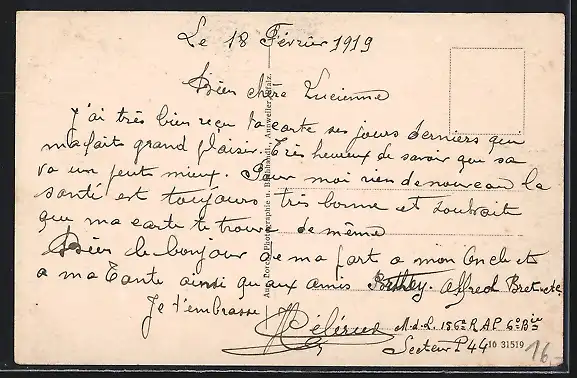 Le 18 Février 1919
Bien chère Lucienne
J'ai très bien reçu ta carte ses jours derniers qui
ma faits grand plaisir. Très heureux de savoir que sa
va un peut mieux. Pour moi rien de nouveau la
santé est toujours très bonne et souhaite
que ma carte te trouve de même
Bien le bonjour de ma part a mon Oncle et
a ma Tante ainsi qu aux amis Alfred Bret etc.
Je t'embrasse
M.d.L. 156e R.A.P 6e Bie
Secteur P 44
Photographie u. Annweiler, Pfalz.
10 31519
16,-